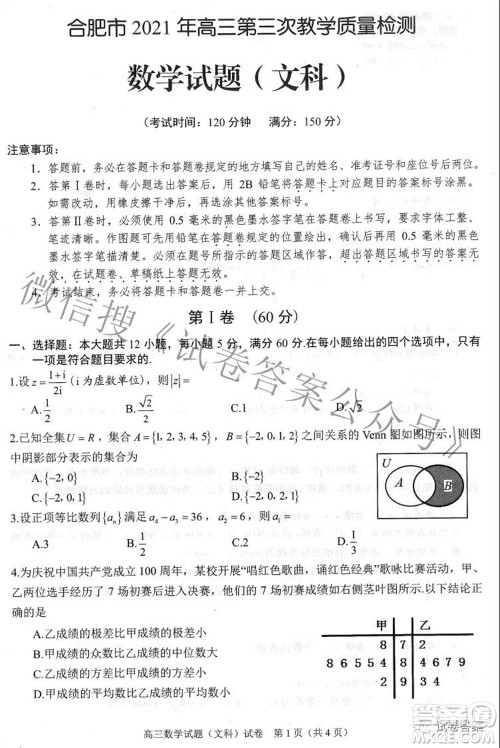 合肥市 2021 年高三第三次教学质量检测
数学试题（文科）
（考试时间：120 分钟 满分：150 分）
注意事项：
1．答题前，务必在答题卡和答题卷规定的地方填写自己的姓名、准考证号和座位号后两位。
2．答第Ⅰ卷时，每小题选出答案后，用 2B 铅笔将答题卡上对应题目的答案标号涂黑。
如需改动，用橡皮擦干净后，再选涂其它答案标号。
3．答第Ⅱ卷时，必须使用 0.5 毫米的黑色墨水签字笔在答题卷上书写，要求字体工整、
笔迹清晰。作图题可先用铅笔在答题卷规定的位置绘出，确认后再用 0.5 毫米的黑色
墨水签字笔描清楚。必须在题号所指示的答题区域作答，超出答题区域书写的答案无
效，在试题卷、草稿纸上答题无效。
4．考试结束，务必将答题卡和答题卷一并上交。
第Ⅰ卷 （60 分）
一、选择题：本大题共 12 小题，每小题 5 分，满分 60 分.在每小题给出的四个选项中，只有
一项是符合题目要求的.
1.设 z=(1+i)/2i（i 为虚数单位），则|z|=
A.1/2 B.√2/2 C.1 D.√2
2.已知全集U=R，集合 A={1,2,3,4,5}，B={-2,0,1,2}之间关系的 Venn 图如图所示，则图
中阴影部分表示的集合为
A.{-2,0} B.{-2}
C.{-2,0,1} D.{-2,0,1,2}
U
A B
3.设正项等比数列{aₙ}满足 a₄-a₃=36，a₂=6，则 a₁=
A.3 B.1/2 C.2 D.1/3
4.为庆祝中国共产党成立 100 周年，某校开展“唱红色歌曲，诵红色经典”歌咏比赛活动，甲、
乙两位选手经历了 7 场初赛后进入决赛，他们的 7 场初赛成绩如右侧茎叶图所示.以下结论
正确的是
A.乙成绩的极差比甲成绩的极差小
B.甲成绩的众数比乙成绩的中位数大
C.乙成绩的方差比甲成绩的方差小
D.甲成绩的平均数比乙成绩的平均数小
甲 乙
8 7 2
8 6 5 5 4 8 4 6 7 9
2 9 2 3
高三数学试题（文科）试卷 第 1 页（共 4 页）
微信搜《试卷答案公众号》
试卷答案